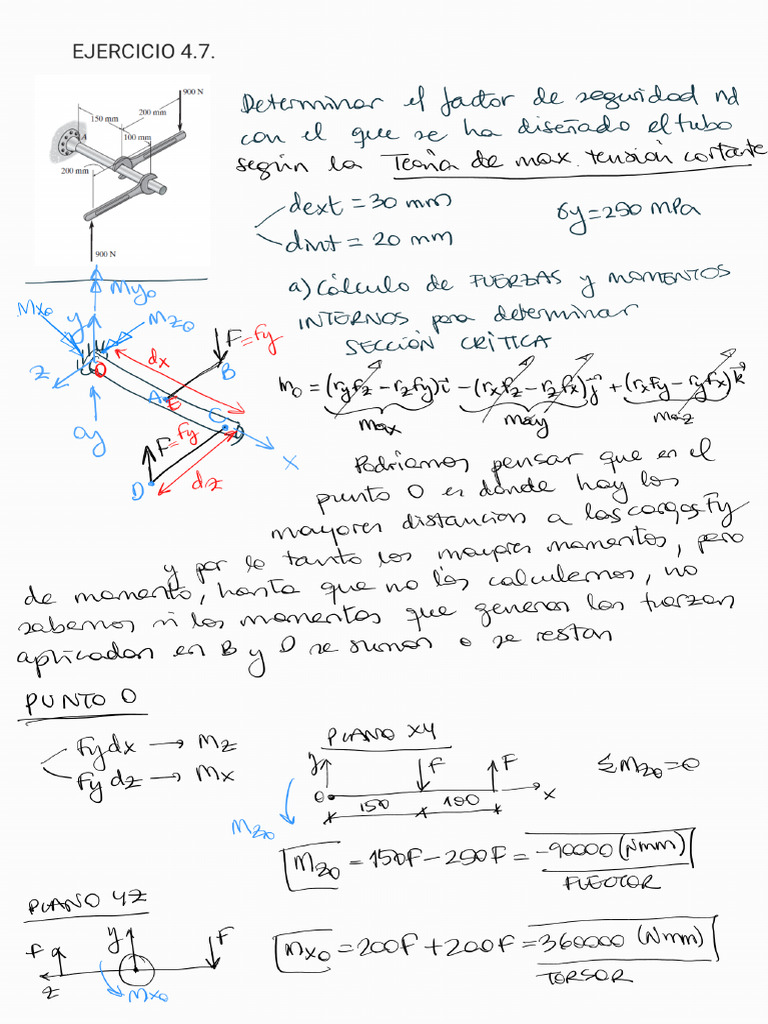 EJERCICIO 4.7.
900 N
200 mm
150 mm
A
100 mm
200 mm
900 N
Determinar el factor de seguridad nd
con el que se ha diseñado el tubo
según la Teoría de max. tensión cortante
dext = 30 mm
dint = 20 mm
σy = 250 MPa
a) Cálculo de FUERZAS y MOMENTOS
INTERNOS para determinar
SECCIÓN CRÍTICA
My0
Mx0
y
Mz0
F = Fy
dx
z
O
B
A
E
C
Oy
F = Fy
x
D
dz
m0 = (ryfz - rzfy)i - (rxfz - rzfx)j + (rxfy - ryfx)k
max
may
maz
Podríamos pensar que en el
punto O es donde hay las
mayores distancias a las cargas Fy
y por lo tanto los mayores momentos, pero
de momento, hasta que no los calculemos, no
sabemos si los momentos que generan las fuerzas
aplicadas en B y D se suman o se restan
PUNTO O
Fy dx → Mz
Fy dz → Mx
PLANO XY
y
F
F
O
x
150
100
Mz0
ΣMz0 = 0
Mz0 = 150F - 250F = -90000 (Nmm)
FLECTOR
PLANO YZ
F
y
F
z
Mx0
Mx0 = 200F + 200F = 360000 (Nmm)
TORSOR